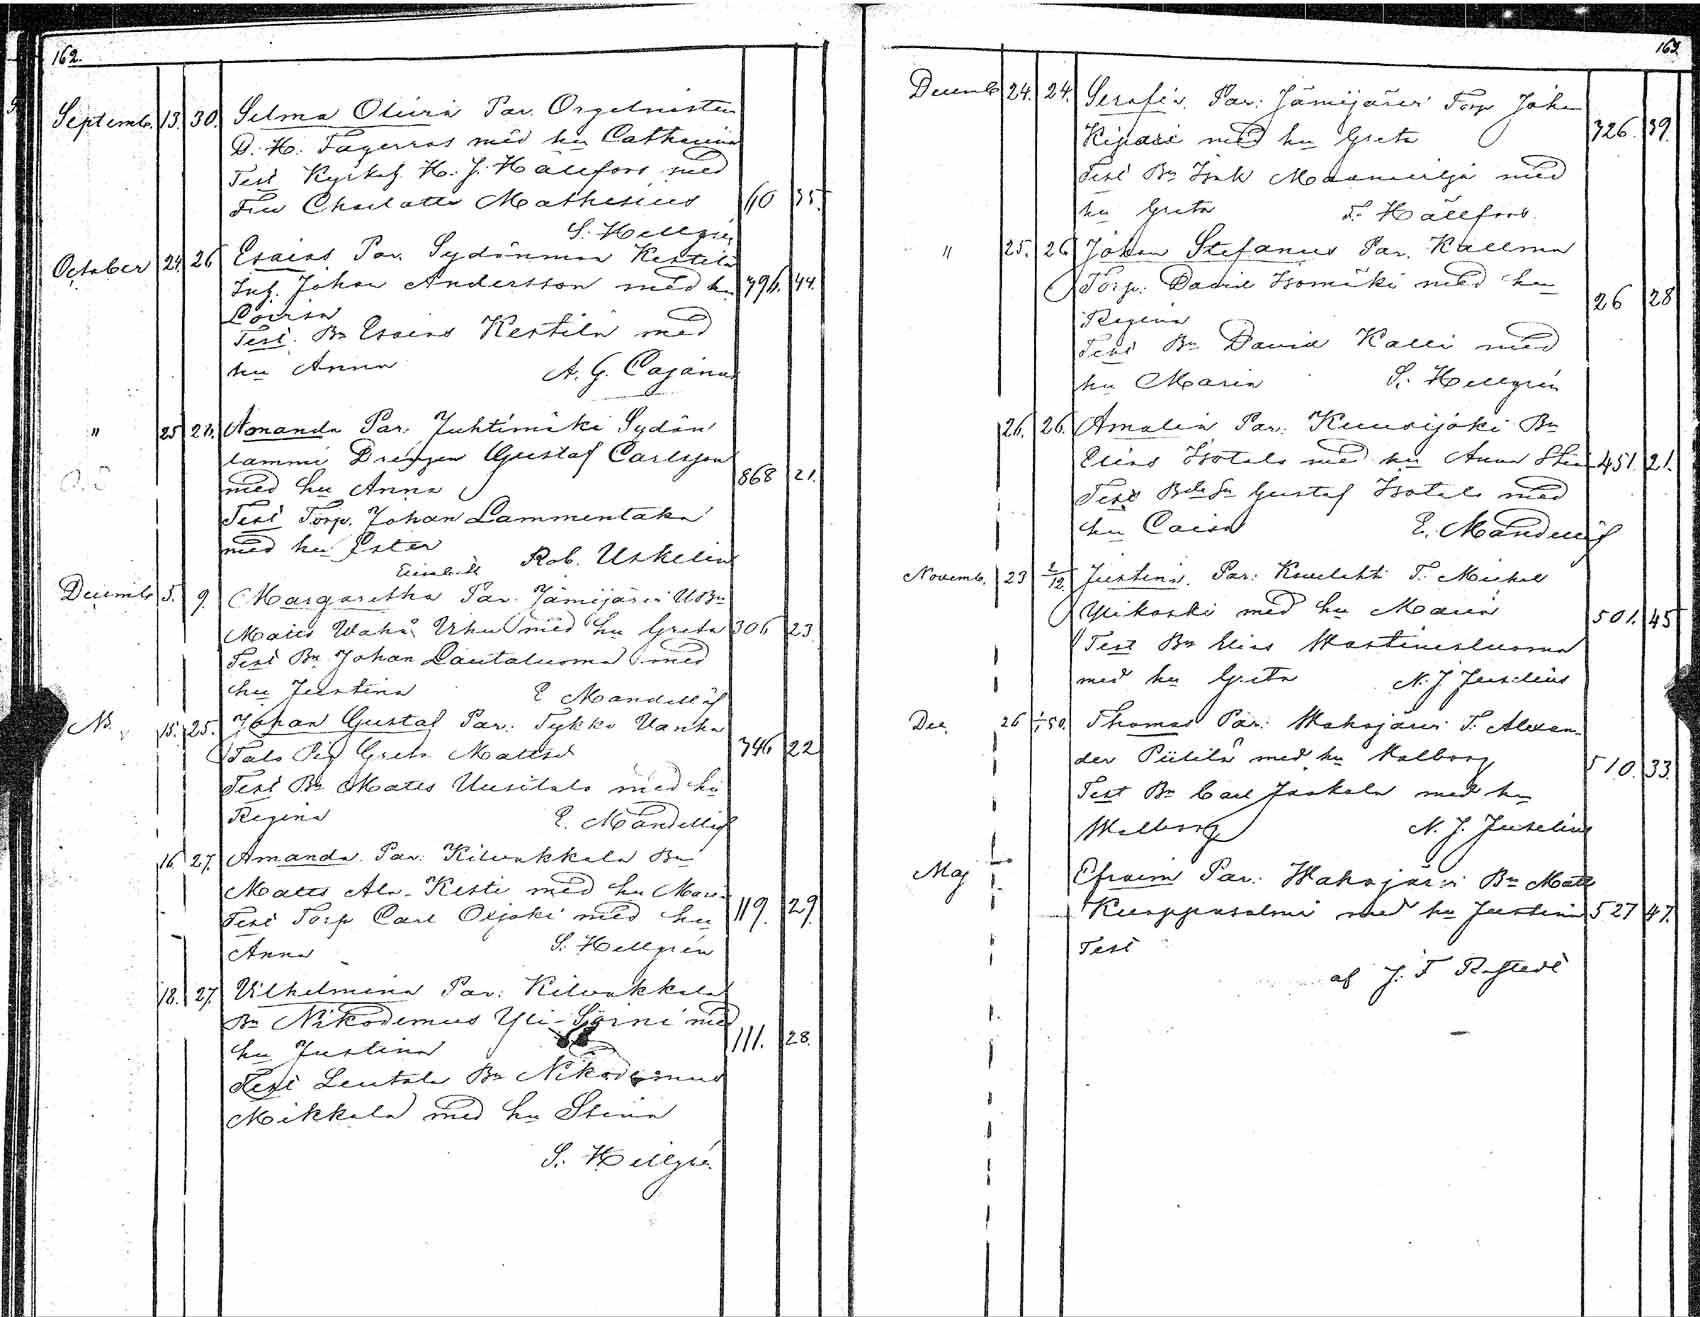 162.
Septemb. 13. 30. Selma Olivia Par. Orgelnisten
D. H. Fagerros med hu Catharina
Test H. J. Hällfors med
Fru Charlotta Mathesius 60 35.
S. Hellgrén
October 24. 26 Esaias Par. Sydänmaa Kestilä
Inh. Johan Andersson med hu 796. 44.
Lovisa
Test. Bn Esaias Kestilä med
hu Anna A. G. Cajanus
" 25 26. Amanda Par. Juhtimäki Sydän
lammi Drengen Gustaf Carlsson
med hu Anna 868 21.
Test Torp. Johan Lammentaka
med hu Ester Rob. Uskelin
Decemb. 5. 9. Margaretha Par. Jämijärvi
Matts Uhu med hu Greta 306 23
Test Bn Johan Lautaluoma med
hu Justina E Mandellöf
15. 25. Johan Gustaf Par: Tykko Vanha
Talo Pig Greta Mattsd 346 22
Test Bn Matts Uusitalo med hu
Regina E. Mandellöf
16 27. Amanda Par: Kilvakkala Bn
Matts Ala-Kesti med hu Maria
Test Torp Carl Ojajoki med hu 119. 29.
Anna S. Hellgrén
18. 27. Vilhelmina Par: Kilvakkala
Bn Nikodemus Yli-Sorni med
hu Justina 111. 28.
Test Leutala Bn Nikodemus
Mikkola med hu Stina
S. Hellgrén
163
Decemb 24. 24. Serafia. Par: Jämijärvi Torp Johan
med hu Greta 326. 39.
Test Bn Isak med
hu Greta F. Hällfors.
" 25. 26 Johan Stefanus Par. Kallmaa
Torp. David Isomäki med hu
Regina 26 28
Test Bn David Kalli med
hu Maria S. Hellgrén
26. 26. Amalia Par: Kuusijoki Bn
Elias Isotalo med hu Anna Stina 451. 21.
Test Gustaf Isotalo med
hu Caisa E. Mandellöf
Novemb. 23 2/12 Justina. Par: Kovelahti T. Michel
Ylikoski med hu Maria 501. 45
Test Bn Elias Wastinesluoma
med hu Greta N. J Juselius
Dec. 26 1/1 50. Thomas Par: Wahojärvi T. Alexan-
der Piitilä med hu Walborg 510. 33.
Test Bn Carl Jaakola med hu
Walborg N. J. Juselius
Maj Efraim Par: Wahojärvi Bn Matts
Kuoppasalmi med hu Justina 527 47.
Test
af J. F